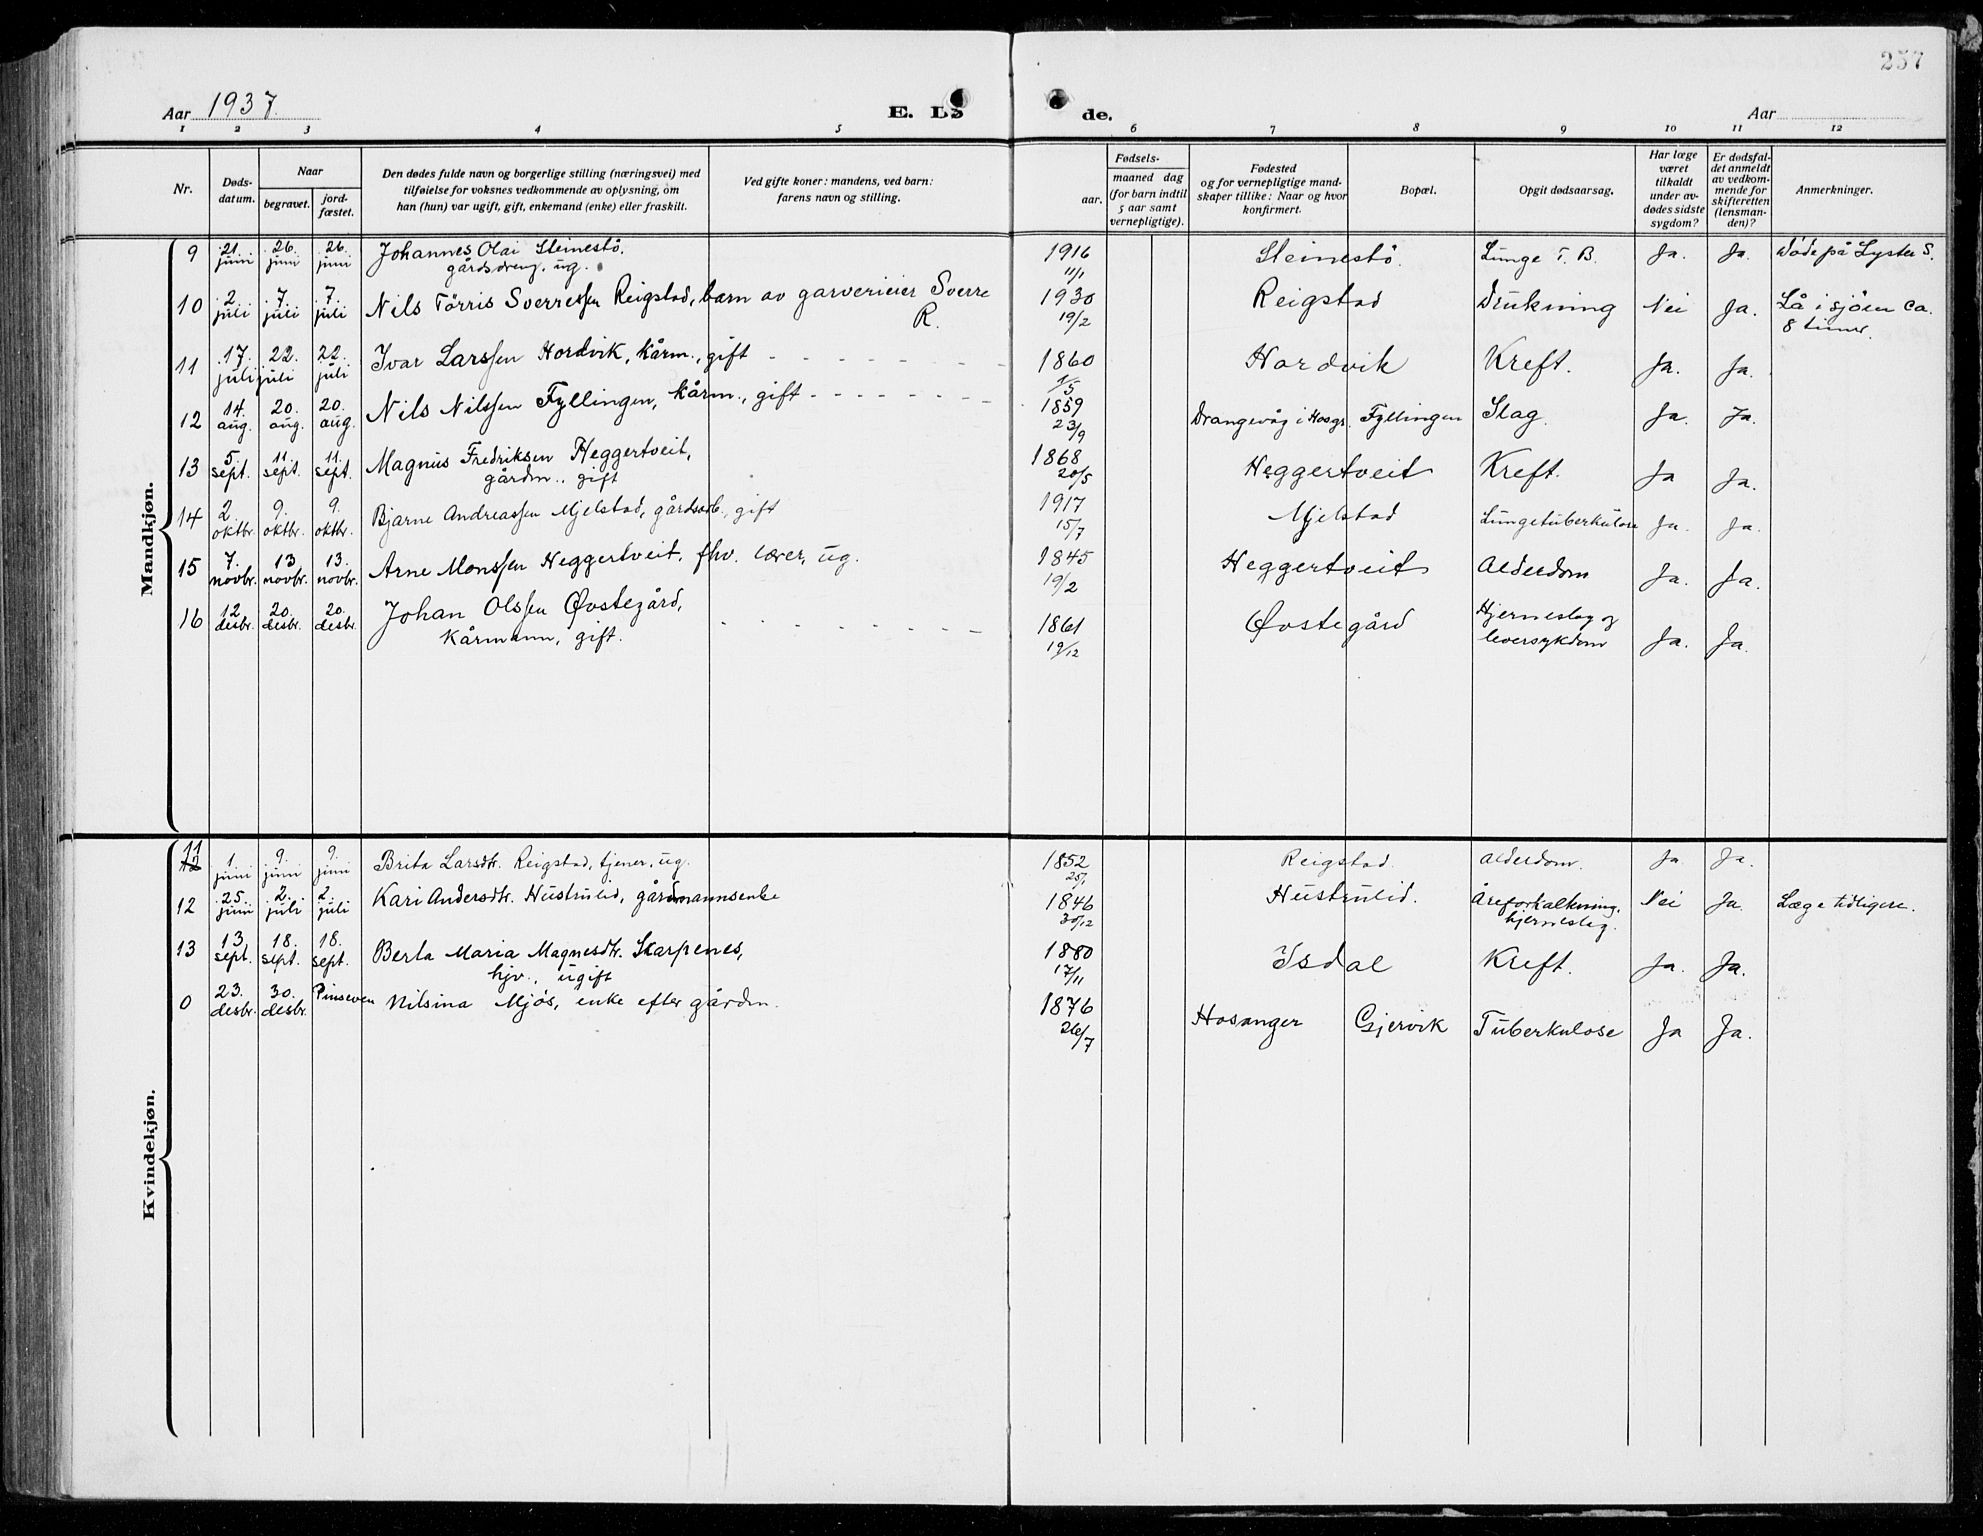 257
Aar 1937.
E. Dø
de.
Aar
1 2 3 4 5 6 7 8 9 10 11 12
Nr.
Døds-
datum.
Naar
begravet.
jord-
fæstet.
Den dødes fulde navn og borgerlige stilling (næringsvei) med
tilføielse for voksnes vedkommende av oplysning, om
han (hun) var ugift, gift, enkemand (enke) eller fraskilt.
Ved gifte koner: mandens, ved barn:
farens navn og stilling.
Fødsels-
aar.
maaned dag
(for barn indtil
5 aar samt
vernepligtige).
Fødested
og for vernepligtige mand-
skaper tillike: Naar og hvor
konfirmert.
Bopæl.
Opgit dødsaarsag.
Har læge
været
tilkaldt
under av-
dødes sidste
sygdom?
Er dødsfal-
det anmeldt
av vedkom-
mende for
skifteretten
(lensman-
den)?
Anmerkninger.
Mandkjøn.
9 21. juni 26. juni 26. juni Johannes Olai Steinestö. 1916 Steinestö. Lunge T. B. Ja. Ja. Döde på Lyster S.
gårdsdreng, ug. 11/1
10 2. juli 7. juli 7. juli Nils Törris Sverressen Reigstad, barn av garverieier Sverre 1930 Reigstad Drukning Nei Ja. Lå i sjöen ca.
R. 19/2 8 timer.
11 17. juli 22. juli 22. juli Ivar Larssen Hordvik, kårm., gift 1860 Hordvik Kreft. Ja. Ja.
1/5
12 14. aug. 20. aug. 20. aug. Nils Nilssen Fyllingen, kårm., gift 1859 Drangevåg i Hosgr. Fyllingen Slag. Ja. Ja.
23/9
13 5. sept. 11. sept. 11. sept. Magnus Fredriksen Heggertveit, 1868 Heggertveit Kreft. Ja Ja.
gårdm., gift 20/5
14 2. oktbr. 9. oktbr. 9. oktbr. Bjarne Andreassen Mjelstad, gårdsarb., gift 1917 Mjelstad Lungetuberkulose Ja. Ja.
15/7
15 7. novbr. 13 novbr. 13. novbr. Arne Monssen Heggertveit, fhv. lærer, ug. 1845 Heggertveit Alderdom Ja. Ja.
19/2
16 12. desbr. 20. desbr. 20. desbr. Johan Olssen Øvstegård, 1861 Øvstegård Hjerneslag og
kårmann, gift. 19/12 leversykdom Ja. Ja.
Kvindekjøn.
11
12 1. juni 9. juni 9. juni Brita Larsdtr. Reigstad, tjener, ug. 1852 Reigstad. Alderdom. Ja Ja.
25/1
12 25. juni 2. juli 2. juli Kari Andersdtr. Hustrulid, gårdmannsenke 1846 Hustrulid. Åreforkalkning, Nei Ja. Læge tidligere.
30/12 hjerneslag.
13 13. sept. 18. sept. 18. sept. Berta Maria Magnesdtr. Skarpenes, 1880 Isdal Kreft. Ja. Ja.
hjv., ugift 17/11
0 23. desbr. 30. desbr. Pinseven Nilsina Mjös, enke efter gårdm. 1876 Hosanger Gjervik Tuberkulose Ja Ja.
26/7